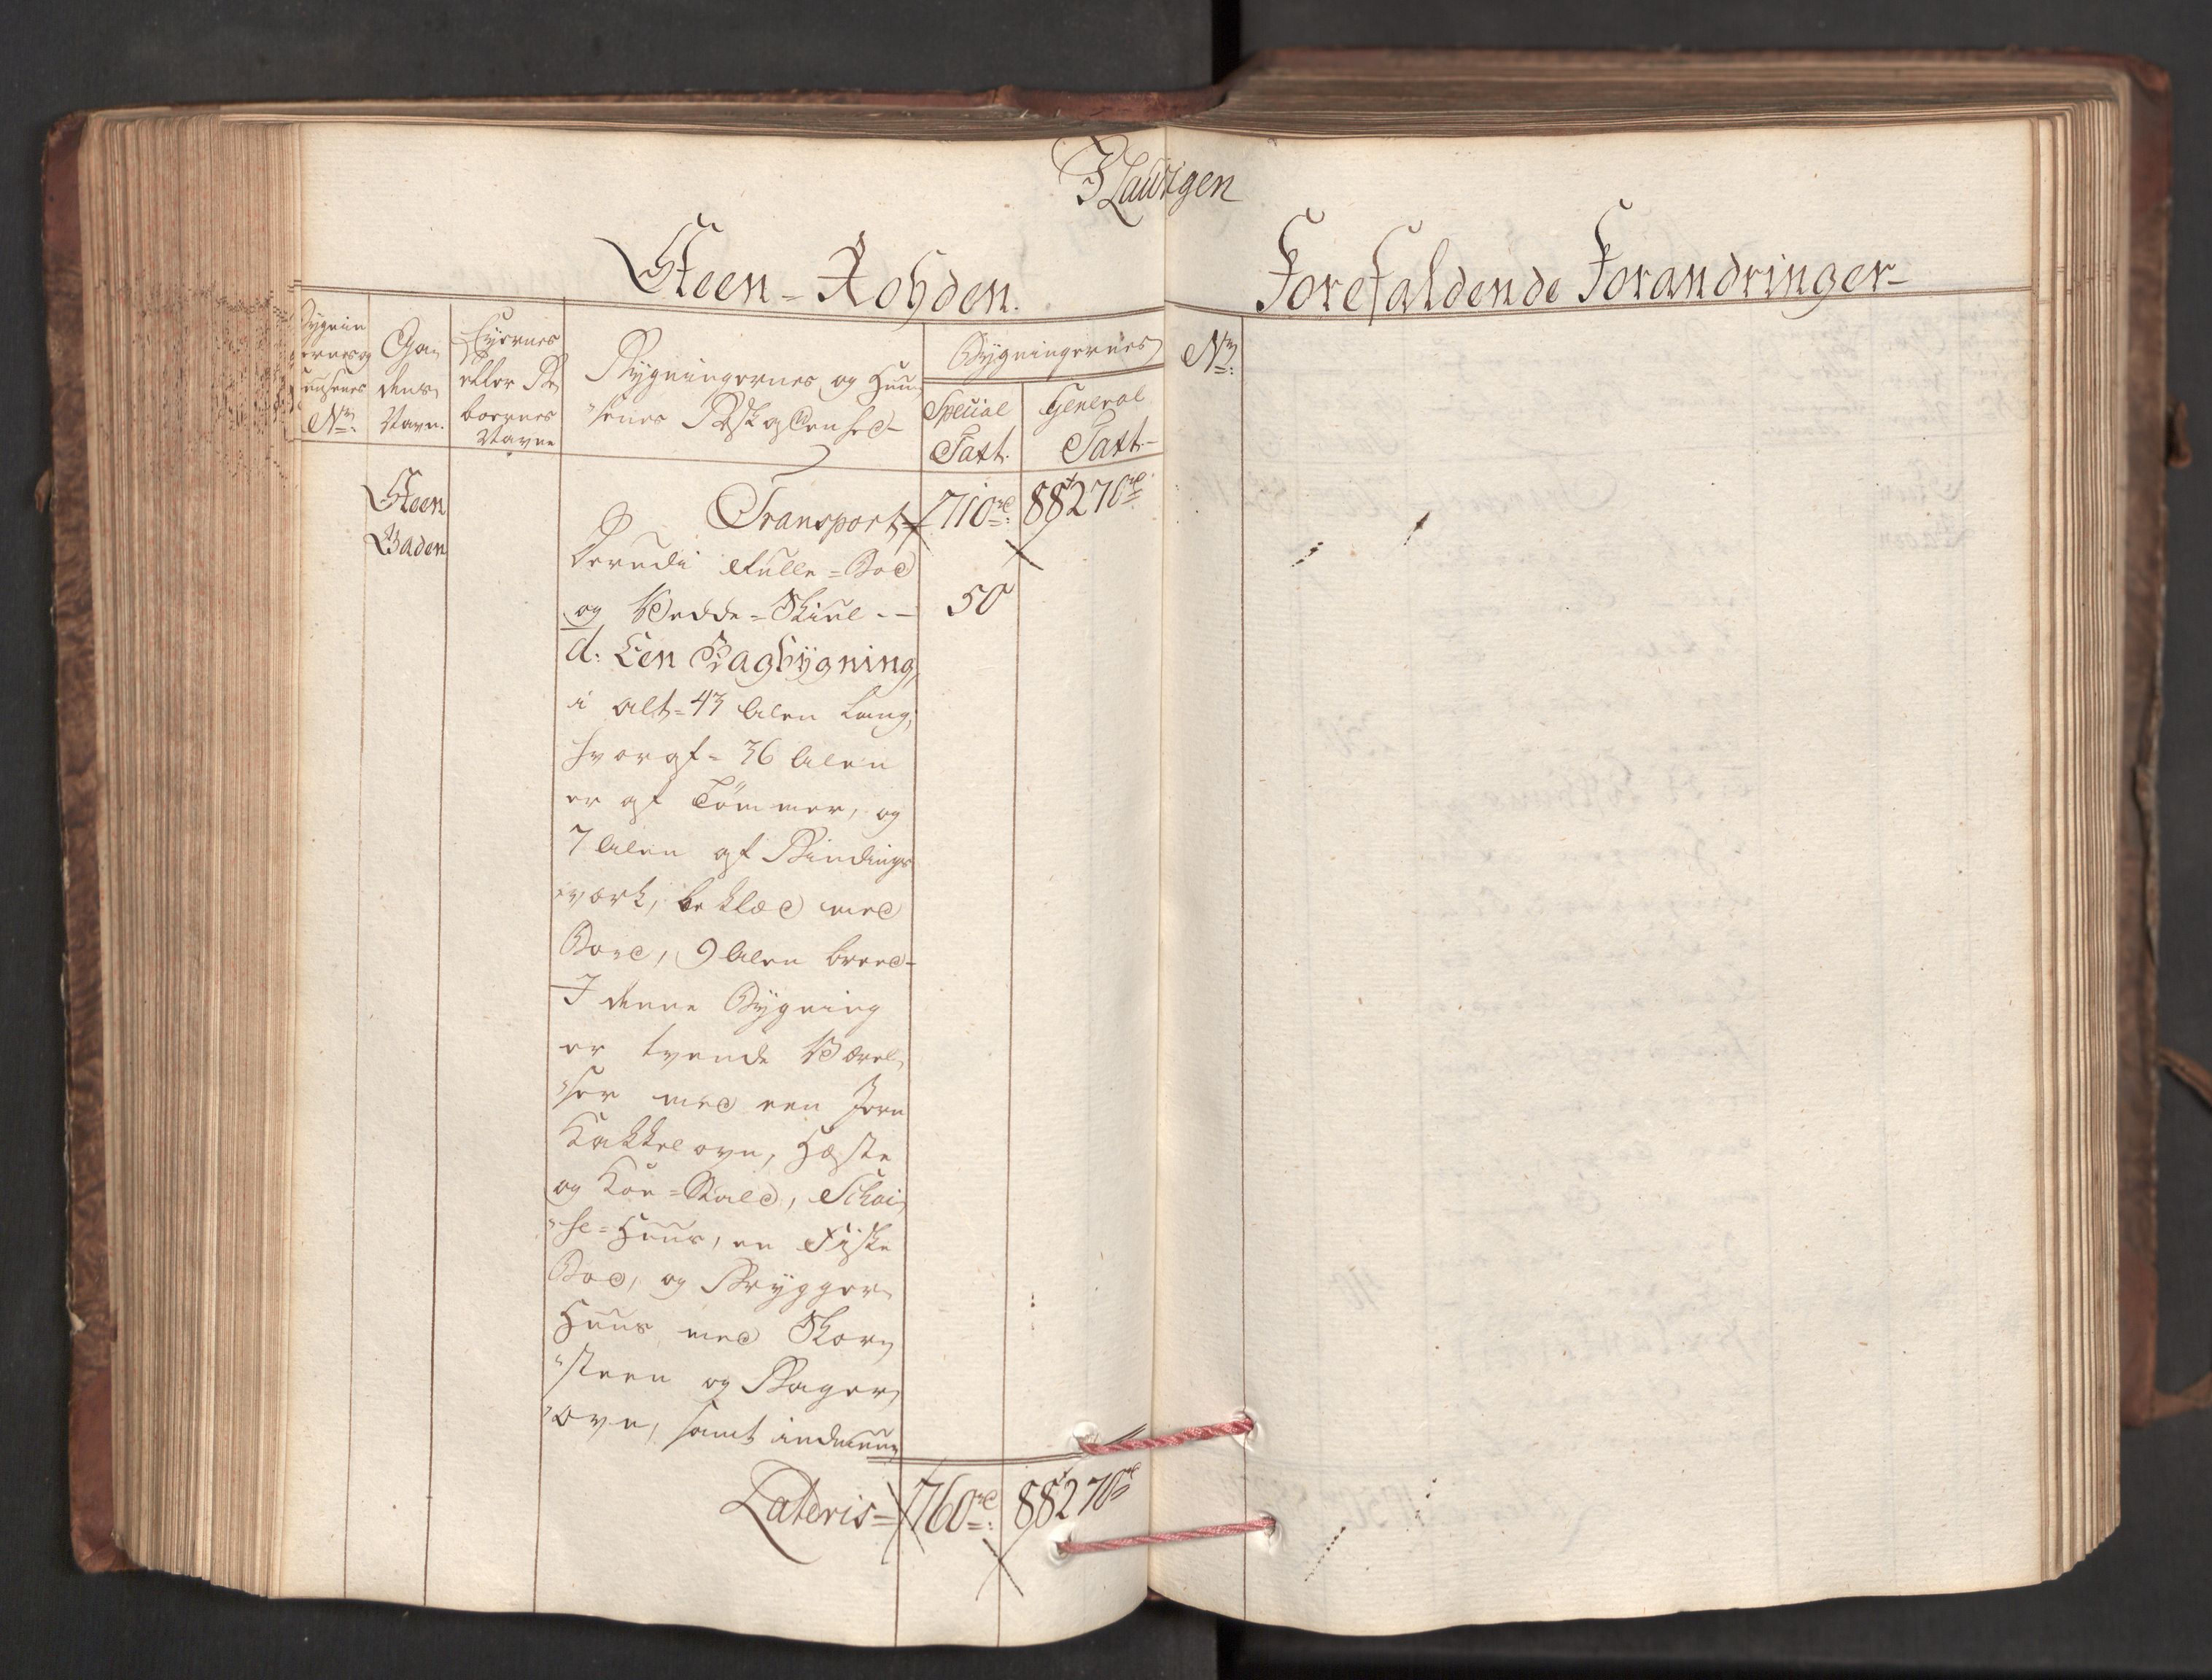 Steen-Rohden.
Forefaldende Forandringer
Bygnin
gernes og
Huusenes
No:
Ga-
dens
Navn.
Eyernes
eller Be-
boernes
Navne
Bygningernes og Huu-
senes Beskaffenhed
Bygningernes
Special
Taxt.
General
Taxt.
No:
Steen
Baden
Transport 710 rd: 88270 rd
Bemeldte Fulle-Bod
og Vedde-Skiul -- 50
d: Een Bagbygning,
i alt 43 Alen lang,
hvoraf 36 Alen
er af Tömmer, og
7 Alen af Bindings
værk, beklæd med
Bord, 9 Alen breed
I denne Bygning
er tvende Værel-
ser med een Jern
Kakkelovn, Hæste
og Köe-Stald, Schai-
se-Huus, en Fiske
Bod, og Brygger-
Huus med Skor-
steen og Bager-
ovn, samt indmuu-
Lateris 760 rd: 88270 rd